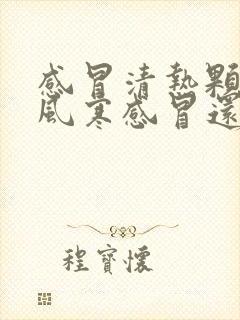 感冒清熱顆
風寒感冒還
程寶懷